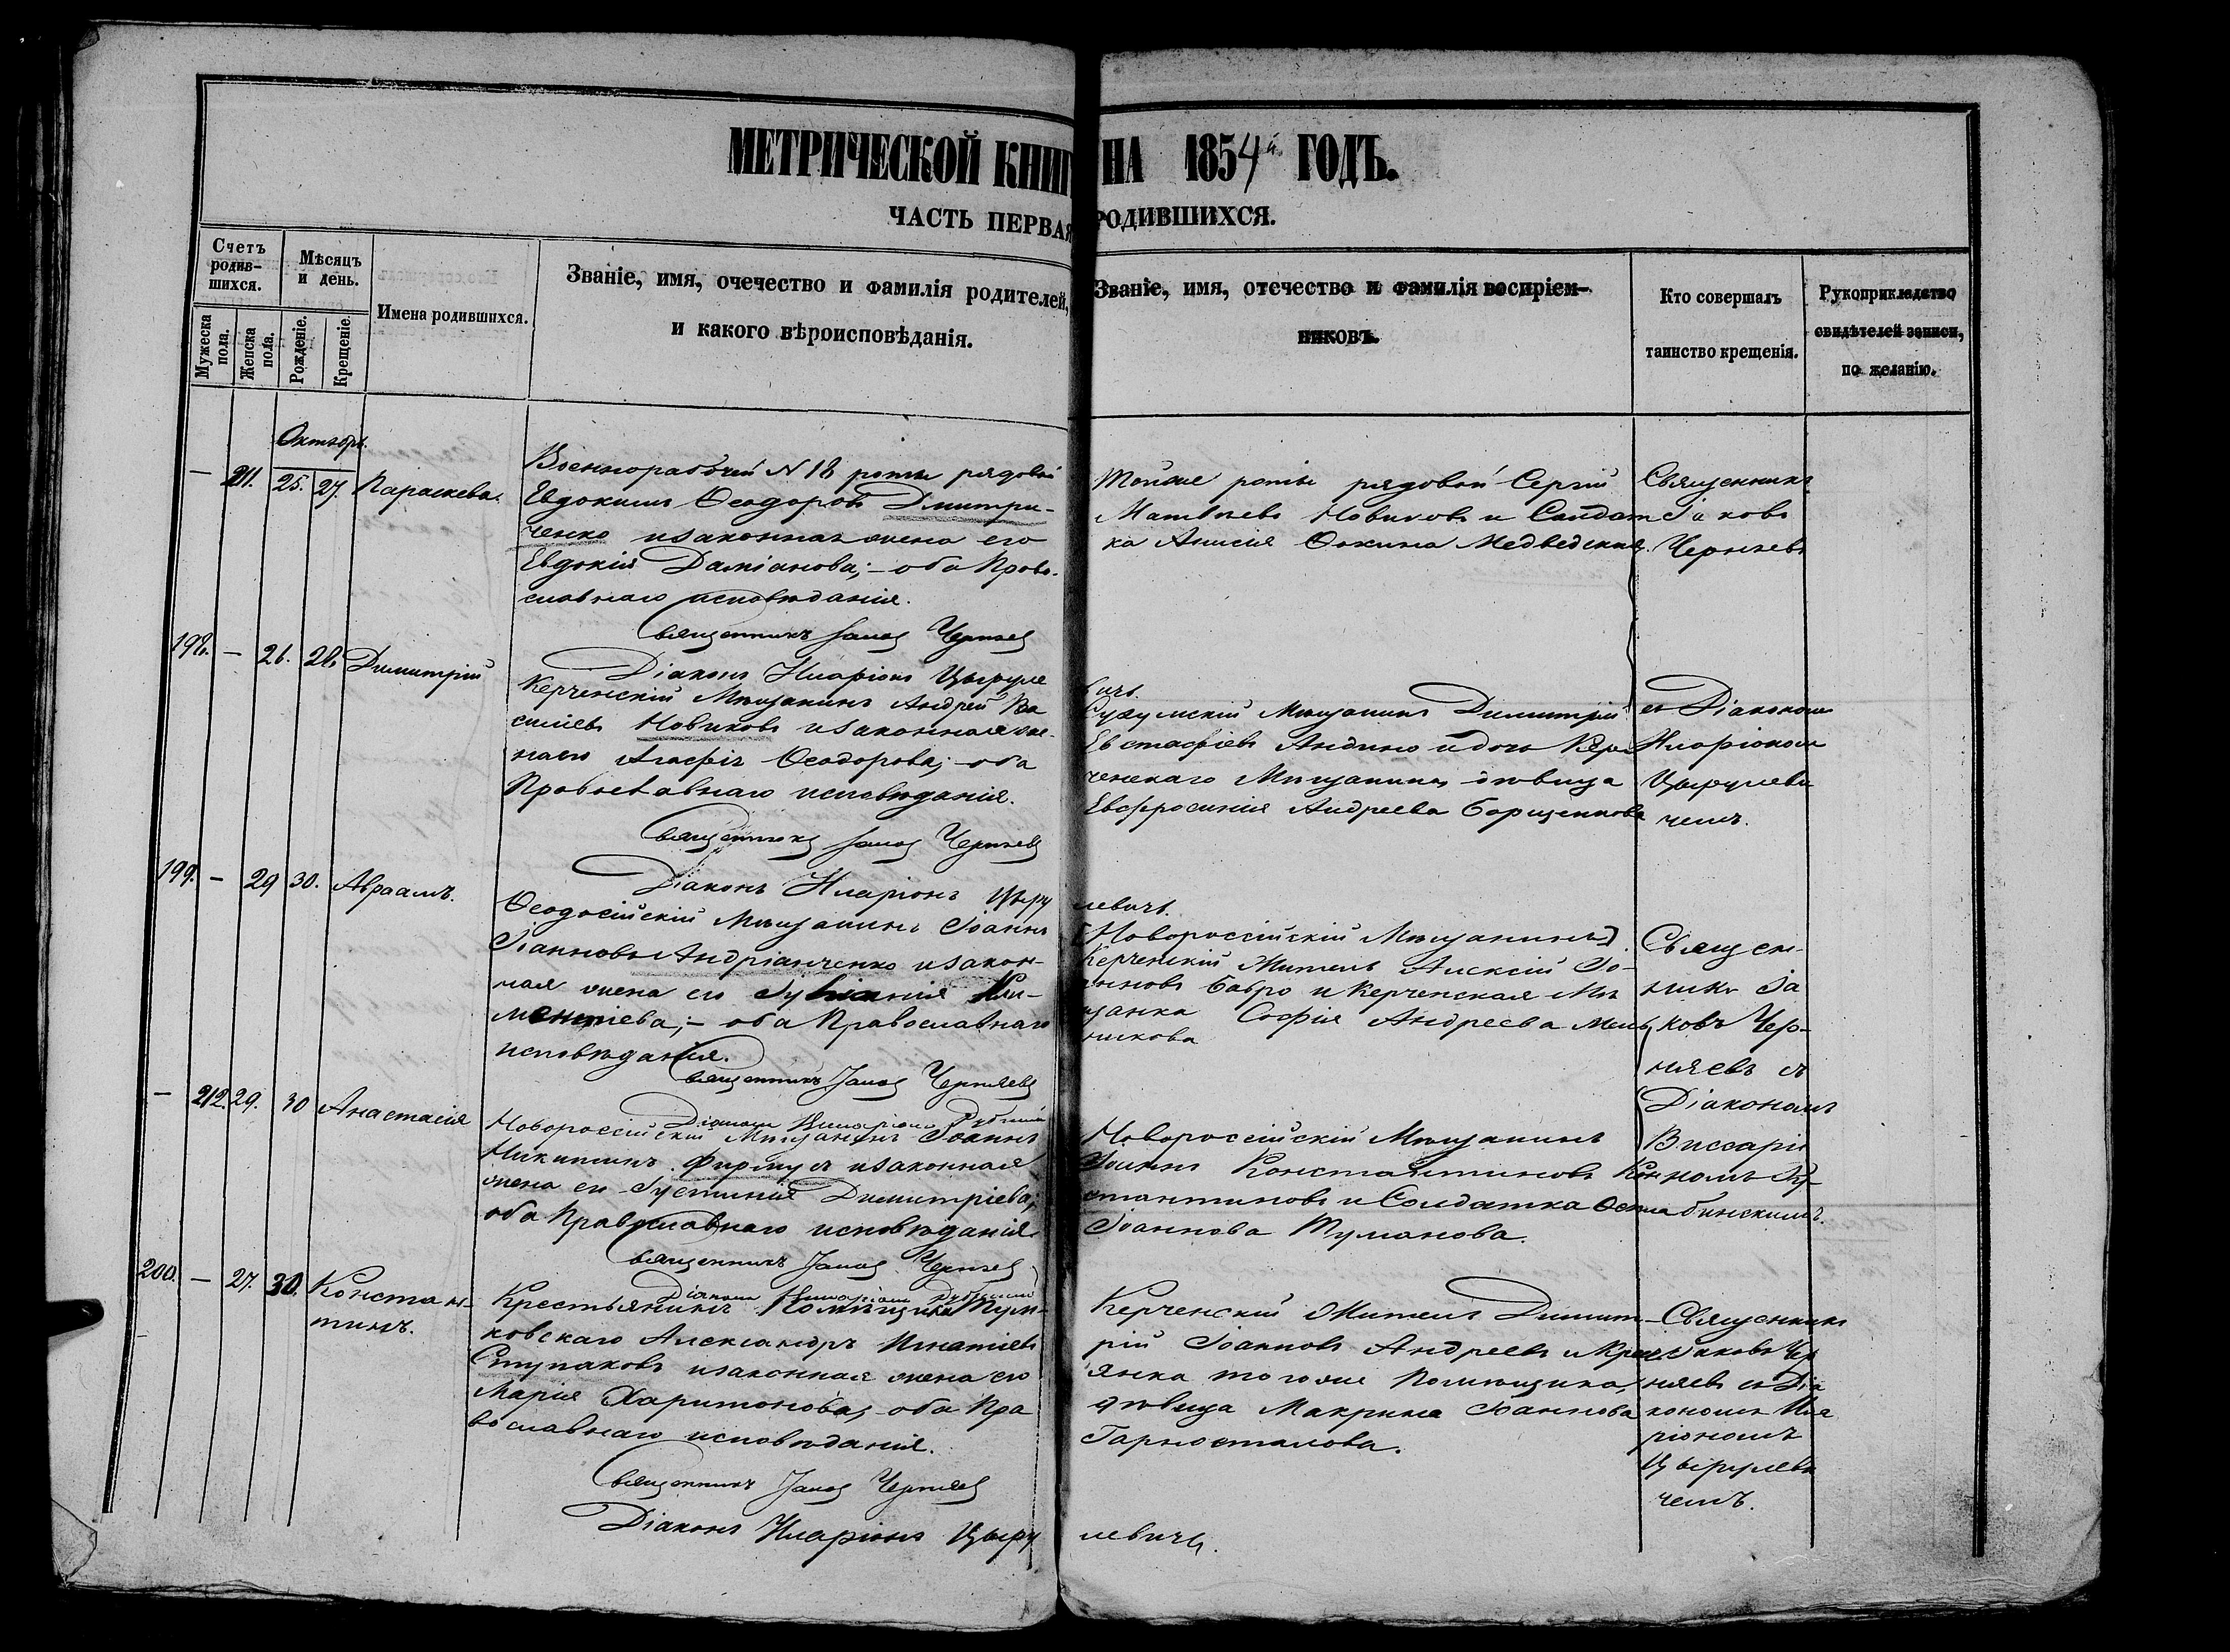 МЕТРИЧЕСКОЙ КНИГ НА 1854й ГОДЪ.
ЧАСТЬ ПЕРВАЯ РОДИВШИХСЯ.
Счетъ родив-шихся.
Мужеска пола.
Женска пола.
Мѣсяцъ и день.
Рожденіе.
Крещеніе.
Имена родившихся.
Званіе, имя, очечество и фамилія родителей,
и какого вѣроисповѣданія.
Званіе, имя, отечество и фамилія воспріем-
никовъ.
Кто совершалъ
таинство крещенія.
Рукоприкладство
свидѣтелей записи,
по желанію.
Октябрь.
— 211. 25. 27. Параскева.
Военнорабочей N 18 роты рядовой
Евдокимъ Ѳеодоровъ Дмитри-
ченко и законная жена его
Евдокія Даміанова; – оба Право-
славнаго исповѣданія.
Священникъ Іаковъ Черняев
Діаконъ Иларіонъ Цыруле
вичъ.
Тойже роты рядовой Сергій
Матвѣевъ Новиковъ и Солдат
ка Анисія Ѳокина Медведския.
Священникъ
Іаковъ
Черняевъ
198. — 26. 28. Димитрій
Керченскій Мѣщанинъ Андрей Ва
силіевъ Новиковъ и законная же-
на его Агафія Ѳеодорова; – оба
Православнаго исповѣданія.
Священникъ Іаковъ Черняев
Діаконъ Иларіонъ Цыру
левичъ.
Сухумскій Мѣщанинъ Димитрій
Евстафіевъ Андино и дочь Кер
ченскаго Мѣщанина дѣвица
Евфросинія Андреева Борщенкова
съ Діакономъ
Иларіономъ
Цырулеви
чемъ.
199. — 29 30. Авраамъ.
Ѳеодосійскій Мѣщанинъ Іоаннъ
Іоанновъ Андріанченко и закон-
ная жена его Іуліанія Кли-
ментіева; – оба Православнаго
исповѣданія.
Священникъ Іаковъ Черняевъ
Діаконъ
[Новороссійскій Мѣщанинъ]
Керченскій Житель Алексій Іо-
анновъ Бабро и Керченская Мѣ
щанка Софія Андреева Мель
никова
Священ-
никъ Іа
ковъ Чер-
няевъ съ
Діакономъ
Виссаріо
номъ Ру-
бинскимъ.
— 212. 29. 30 Анастасія
Новороссійскій Мѣщанинъ Іоаннъ
Никитинъ Фирмусъ и законная
жена его Іустинія Димитріева;
оба Православнаго исповѣданія.
Священникъ Іаковъ Черняев
Діаконъ
Новороссійскій Мѣщанинъ
Іоаннъ Константиновъ Кон
стантиновъ и Солдатка Ѳекла
Іоаннова Туманова.
200. — 27. 30. Констан-
тинъ.
Крестьянинъ Помѣщика
ковскаго Александръ Игнатіевъ
Ступаковъ и законная жена его
Марія Харитонова; оба Пра
вославнаго исповѣданія.
Священникъ Іаковъ Черняев
Діаконъ Иларіонъ Цыру
левичъ.
Керченскій Житель Димит-
рій Іоанновъ Андреевъ и Крест
янка того же Помѣщика,
дѣвица Макрина Іоаннова
Гарносталова.
Священникъ
Іаковъ Чер
няевъ съ Діа
кономъ Ила
ріономъ
Цырулеви
чемъ.